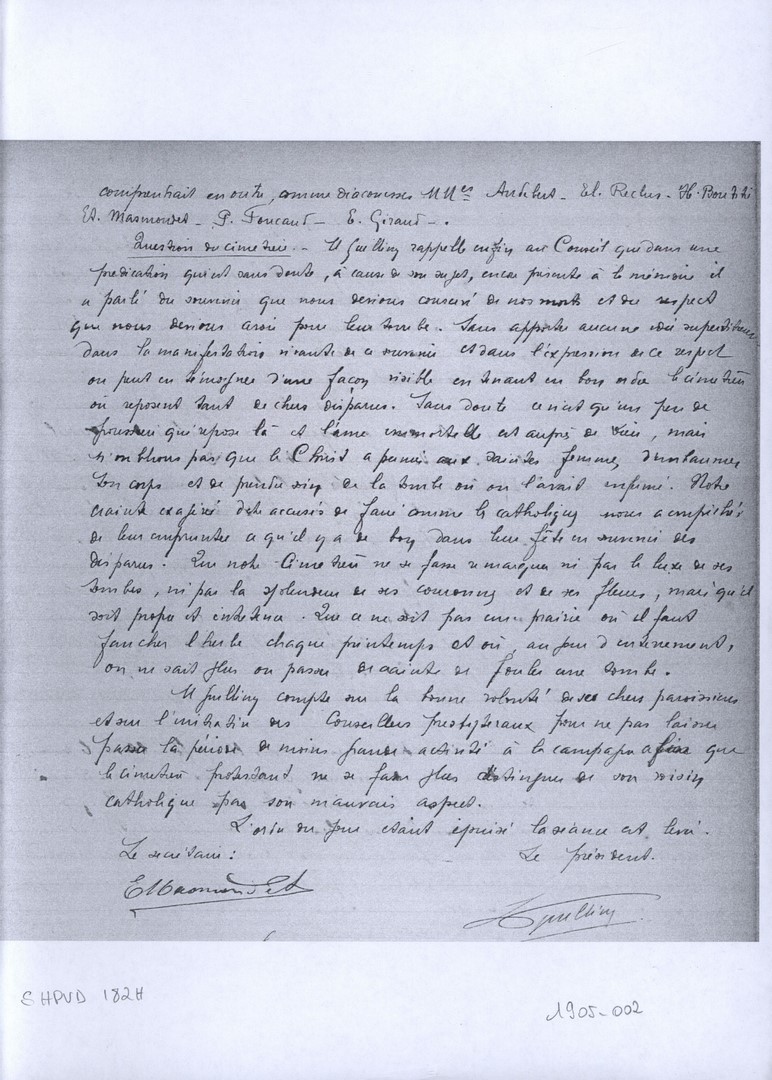 comprendrait en outre, comme diaconesses MMes Audibert - El. Reclus - H.
Et. Masmondet - P. Foucaud - E. Giraud - .
Question du cimetière. - M Guelling rappelle enfin au Conseil que dans une
predication qui est sans doute, à cause de son sujet, encore présente à la mémoire il
a parlé du souvenir que nous devions conserver de nos morts et du respect
que nous devions avoir pour leur tombe. Sans apporter aucune idée superstitieuse
dans la manifestation vivante de ce souvenir et dans l'expression de ce respect
on peut en témoigner d'une façon visible en tenant en bon ordre le cimetière
où reposent tant de chers disparus. Sans doute ce n'est qu'un peu de
poussière qui repose là et l'âme immortelle est auprès de Dieu, mais
n'oublions pas que le Christ a permis aux saintes femmes d'embaumer
son corps et de prendre soin de la tombe où on l'avait inhumé. Notre
crainte exagérée d'être accusés de faire comme les catholiques nous a empêchés
de leur emprunter ce qu'il y a de bon dans leur fête en souvenir des
disparus. Que notre Cimetière ne se fasse remarquer ni par le luxe de ses
tombes, ni par la splendeur de ses couronnes et de ses fleurs, mais qu'il
soit propre et entretenu. Que ce ne soit pas une prairie où il faut
faucher l'herbe chaque printemps et où, au jour d'enterrement,
on ne sait plus où passer de crainte de fouler une tombe.
M Guelling compte sur la bonne volonté de ses chers paroissiens
et sur l'initiative des Conseillers presbytéraux pour ne pas laisser
passer la période de moins grande activité à la campagne afin que
le cimetière protestant ne se fasse plus distinguer de son voisin
catholique par son mauvais aspect.
L'ordre du jour étant épuisé la séance est levée.
Le secrétaire : Le président.
E Masmondet
Guelling
SHPVD 182H 1905-002